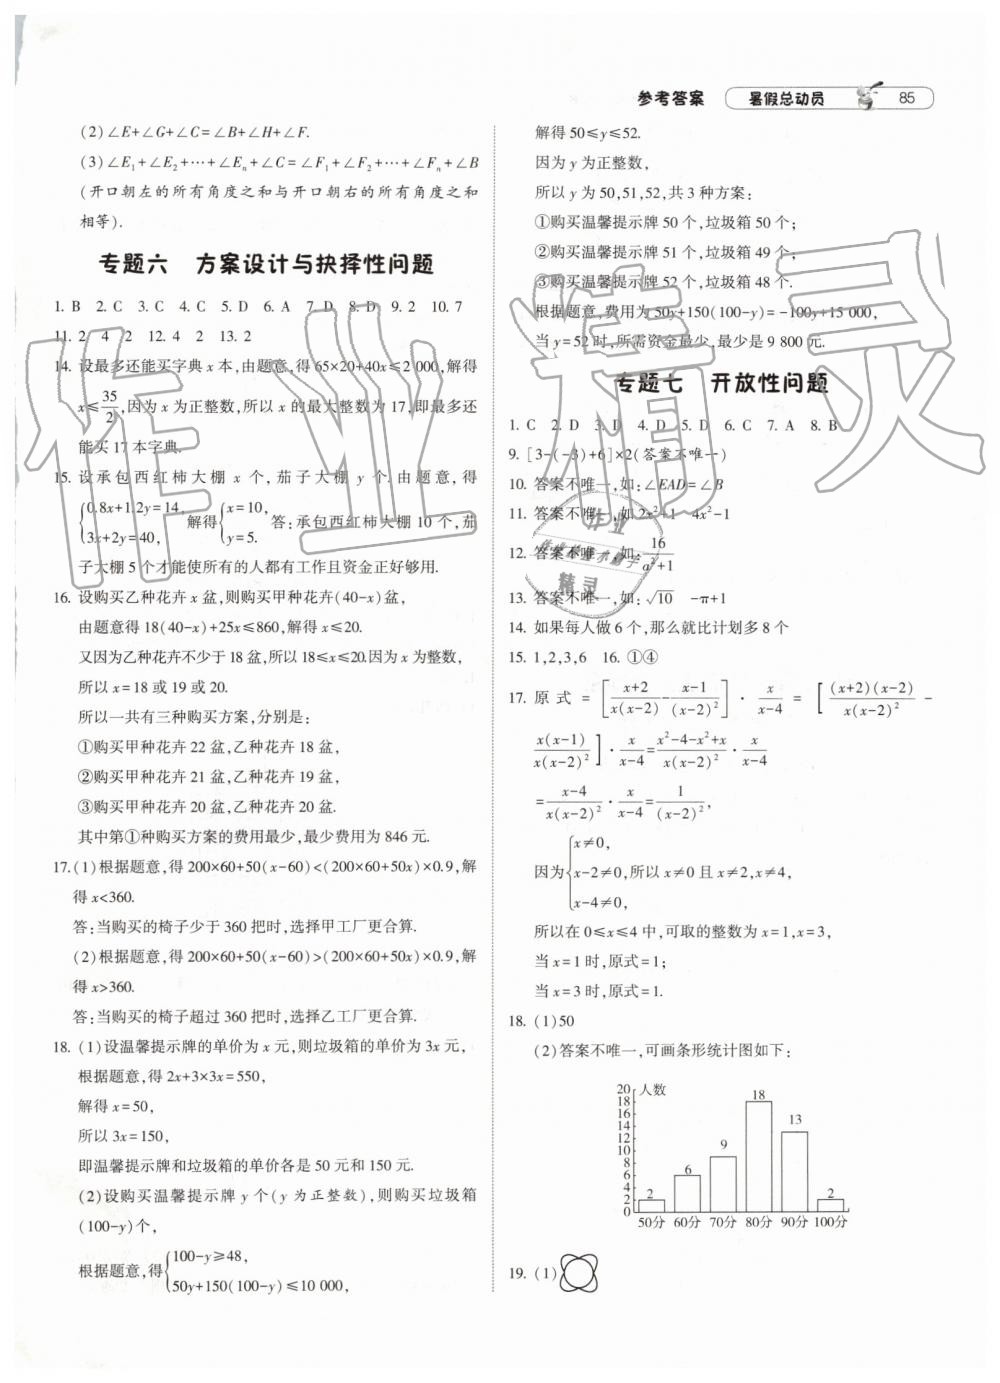 参考答案 暑假总动员 85
(2)∠E+∠G+∠C=∠B+∠H+∠F.
(3)∠E₁+∠E₂+…+∠Eₙ+∠C=∠F₁+∠F₂+…+∠Fₙ+∠B
(开口朝左的所有角度之和与开口朝右的所有角度之和
相等).
专题六 方案设计与抉择性问题
1. B 2. C 3. C 4. C 5. D 6. A 7. D 8. D 9. 2 10. 7
11. 2 4 2 12. 4 2 13. 2
14. 设最多还能买字典 x 本,由题意,得 65×20+40x≤2 000,解得
x≤35/2,因为 x 为正整数,所以 x 的最大整数为 17,即最多还
能买 17 本字典.
15. 设承包西红柿大棚 x 个,茄子大棚 y 个.由题意,得
{0.8x+1.2y=14, 3x+2y=40, 解得{x=10, y=5. 答:承包西红柿大棚 10 个,茄
子大棚 5 个才能使所有的人都有工作且资金正好够用.
16. 设购买乙种花卉 x 盆,则购买甲种花卉(40-x)盆,
由题意得 18(40-x)+25x≤860,解得 x≤20.
又因为乙种花卉不少于 18 盆,所以 18≤x≤20.因为 x 为整数,
所以 x=18 或 19 或 20.
所以一共有三种购买方案,分别是:
①购买甲种花卉 22 盆,乙种花卉 18 盆,
②购买甲种花卉 21 盆,乙种花卉 19 盆,
③购买甲种花卉 20 盆,乙种花卉 20 盆.
其中第①种购买方案的费用最少,最少费用为 846 元.
17. (1)根据题意,得 200×60+50(x-60)<(200×60+50x)×0.9,解
得 x<360.
答:当购买的椅子少于 360 把时,选择甲工厂更合算.
(2)根据题意,得 200×60+50(x-60)>(200×60+50x)×0.9,解
得 x>360.
答:当购买的椅子超过 360 把时,选择乙工厂更合算.
18. (1)设温馨提示牌的单价为 x 元,则垃圾箱的单价为 3x 元,
根据题意,得 2x+3×3x=550,
解得 x=50,
所以 3x=150,
即温馨提示牌和垃圾箱的单价各是 50 元和 150 元.
(2)设购买温馨提示牌 y 个(y 为正整数),则购买垃圾箱
(100-y)个,
根据题意,得{100-y≥48, 50y+150(100-y)≤10 000,
解得 50≤y≤52.
因为 y 为正整数,
所以 y 为 50,51,52,共 3 种方案:
①购买温馨提示牌 50 个,垃圾箱 50 个;
②购买温馨提示牌 51 个,垃圾箱 49 个;
③购买温馨提示牌 52 个,垃圾箱 48 个.
根据题意,费用为 50y+150(100-y)=-100y+15 000,
当 y=52 时,所需资金最少,最少是 9 800 元.
专题七 开放性问题
1. C 2. D 3. D 4. D 5. D 6. C 7. A 8. B
9. [3-(-3)+6]×2(答案不唯一)
10. 答案不唯一,如:∠EAD=∠B
11. 答案不唯一,如 2x²+1 4x²-1
12. 答案不唯一,如:16/(a²+1)
13. 答案不唯一,如:√10 -π+1
14. 如果每人做 6 个,那么就比计划多 8 个
15. 1,2,3,6 16. ①④
17. 原式=[(x+2)/(x(x-2)) - (x-1)/(x-2)²]·x/(x-4)=[(x+2)(x-2)/(x(x-2)²) -
x(x-1)/(x(x-2)²)]·x/(x-4)=(x²-4-x²+x)/(x(x-2)²)·x/(x-4)
=(x-4)/(x(x-2)²)·x/(x-4)=1/(x-2)²,
因为{x≠0, x-2≠0, x-4≠0, 所以 x≠0 且 x≠2,x≠4,
所以在 0≤x≤4 中,可取的整数为 x=1,x=3,
当 x=1 时,原式=1;
当 x=3 时,原式=1.
18. (1)50
(2)答案不唯一,可画条形统计图如下:
人数
20
18
16
14
12
10
8
6
4
2
0
2 6 9 18 13 2
50分 60分 70分 80分 90分 100分
19. (1)
作业精灵
作业
精灵